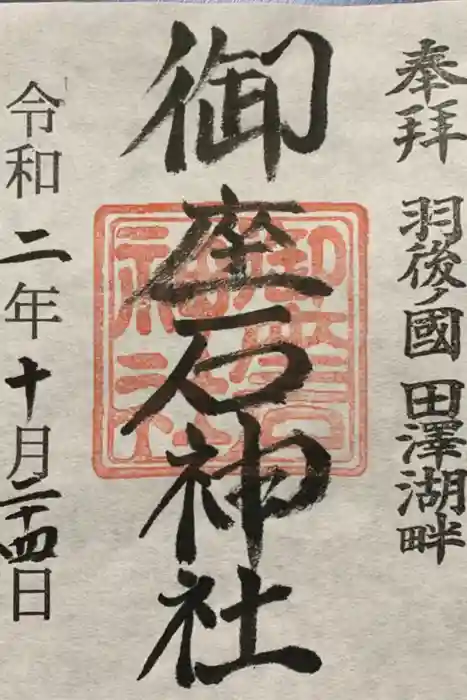 奉拝 羽後ノ國 田澤湖畔
御座石神社
御座石
神社
令和二年十月二十四日